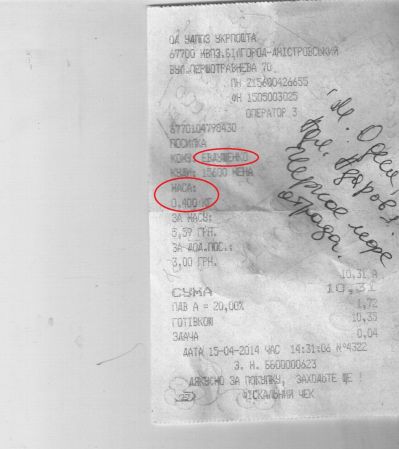 ОД УДППЗ УКРПОШТА
67700 ЦВПЗ.БІЛГОРОД-ДНІСТРОВСЬКИЙ
ВУЛ.ПЕРШОТРАВНЕВА 70
ПН 215600426655
ФН 1505003025
ОПЕРАТОР 3
6770104798430
ПОСИЛКА
КОМУ: ЕВДУЩЕНКО
КУДИ: 15600 МЕНА
МАСА:
0,400 КГ
ЗА МАСУ:
5,59 ГРН.
ЗА ДОД.ПОС.:
3,00 ГРН.
10,31 А
СУМА 10,31
ПДВ А = 20,00% 1,72
ГОТІВКОЮ 10,35
ЗДАЧА 0,04
ДАТА 15-04-2014 ЧАС 14:31:06 №4322
З. Н. БС00000623
ДЯКУЄМО ЗА ПОКУПКУ, ЗАХОДЬТЕ ЩЕ !
ФІСКАЛЬНИЙ ЧЕК
Черное море
отрада.